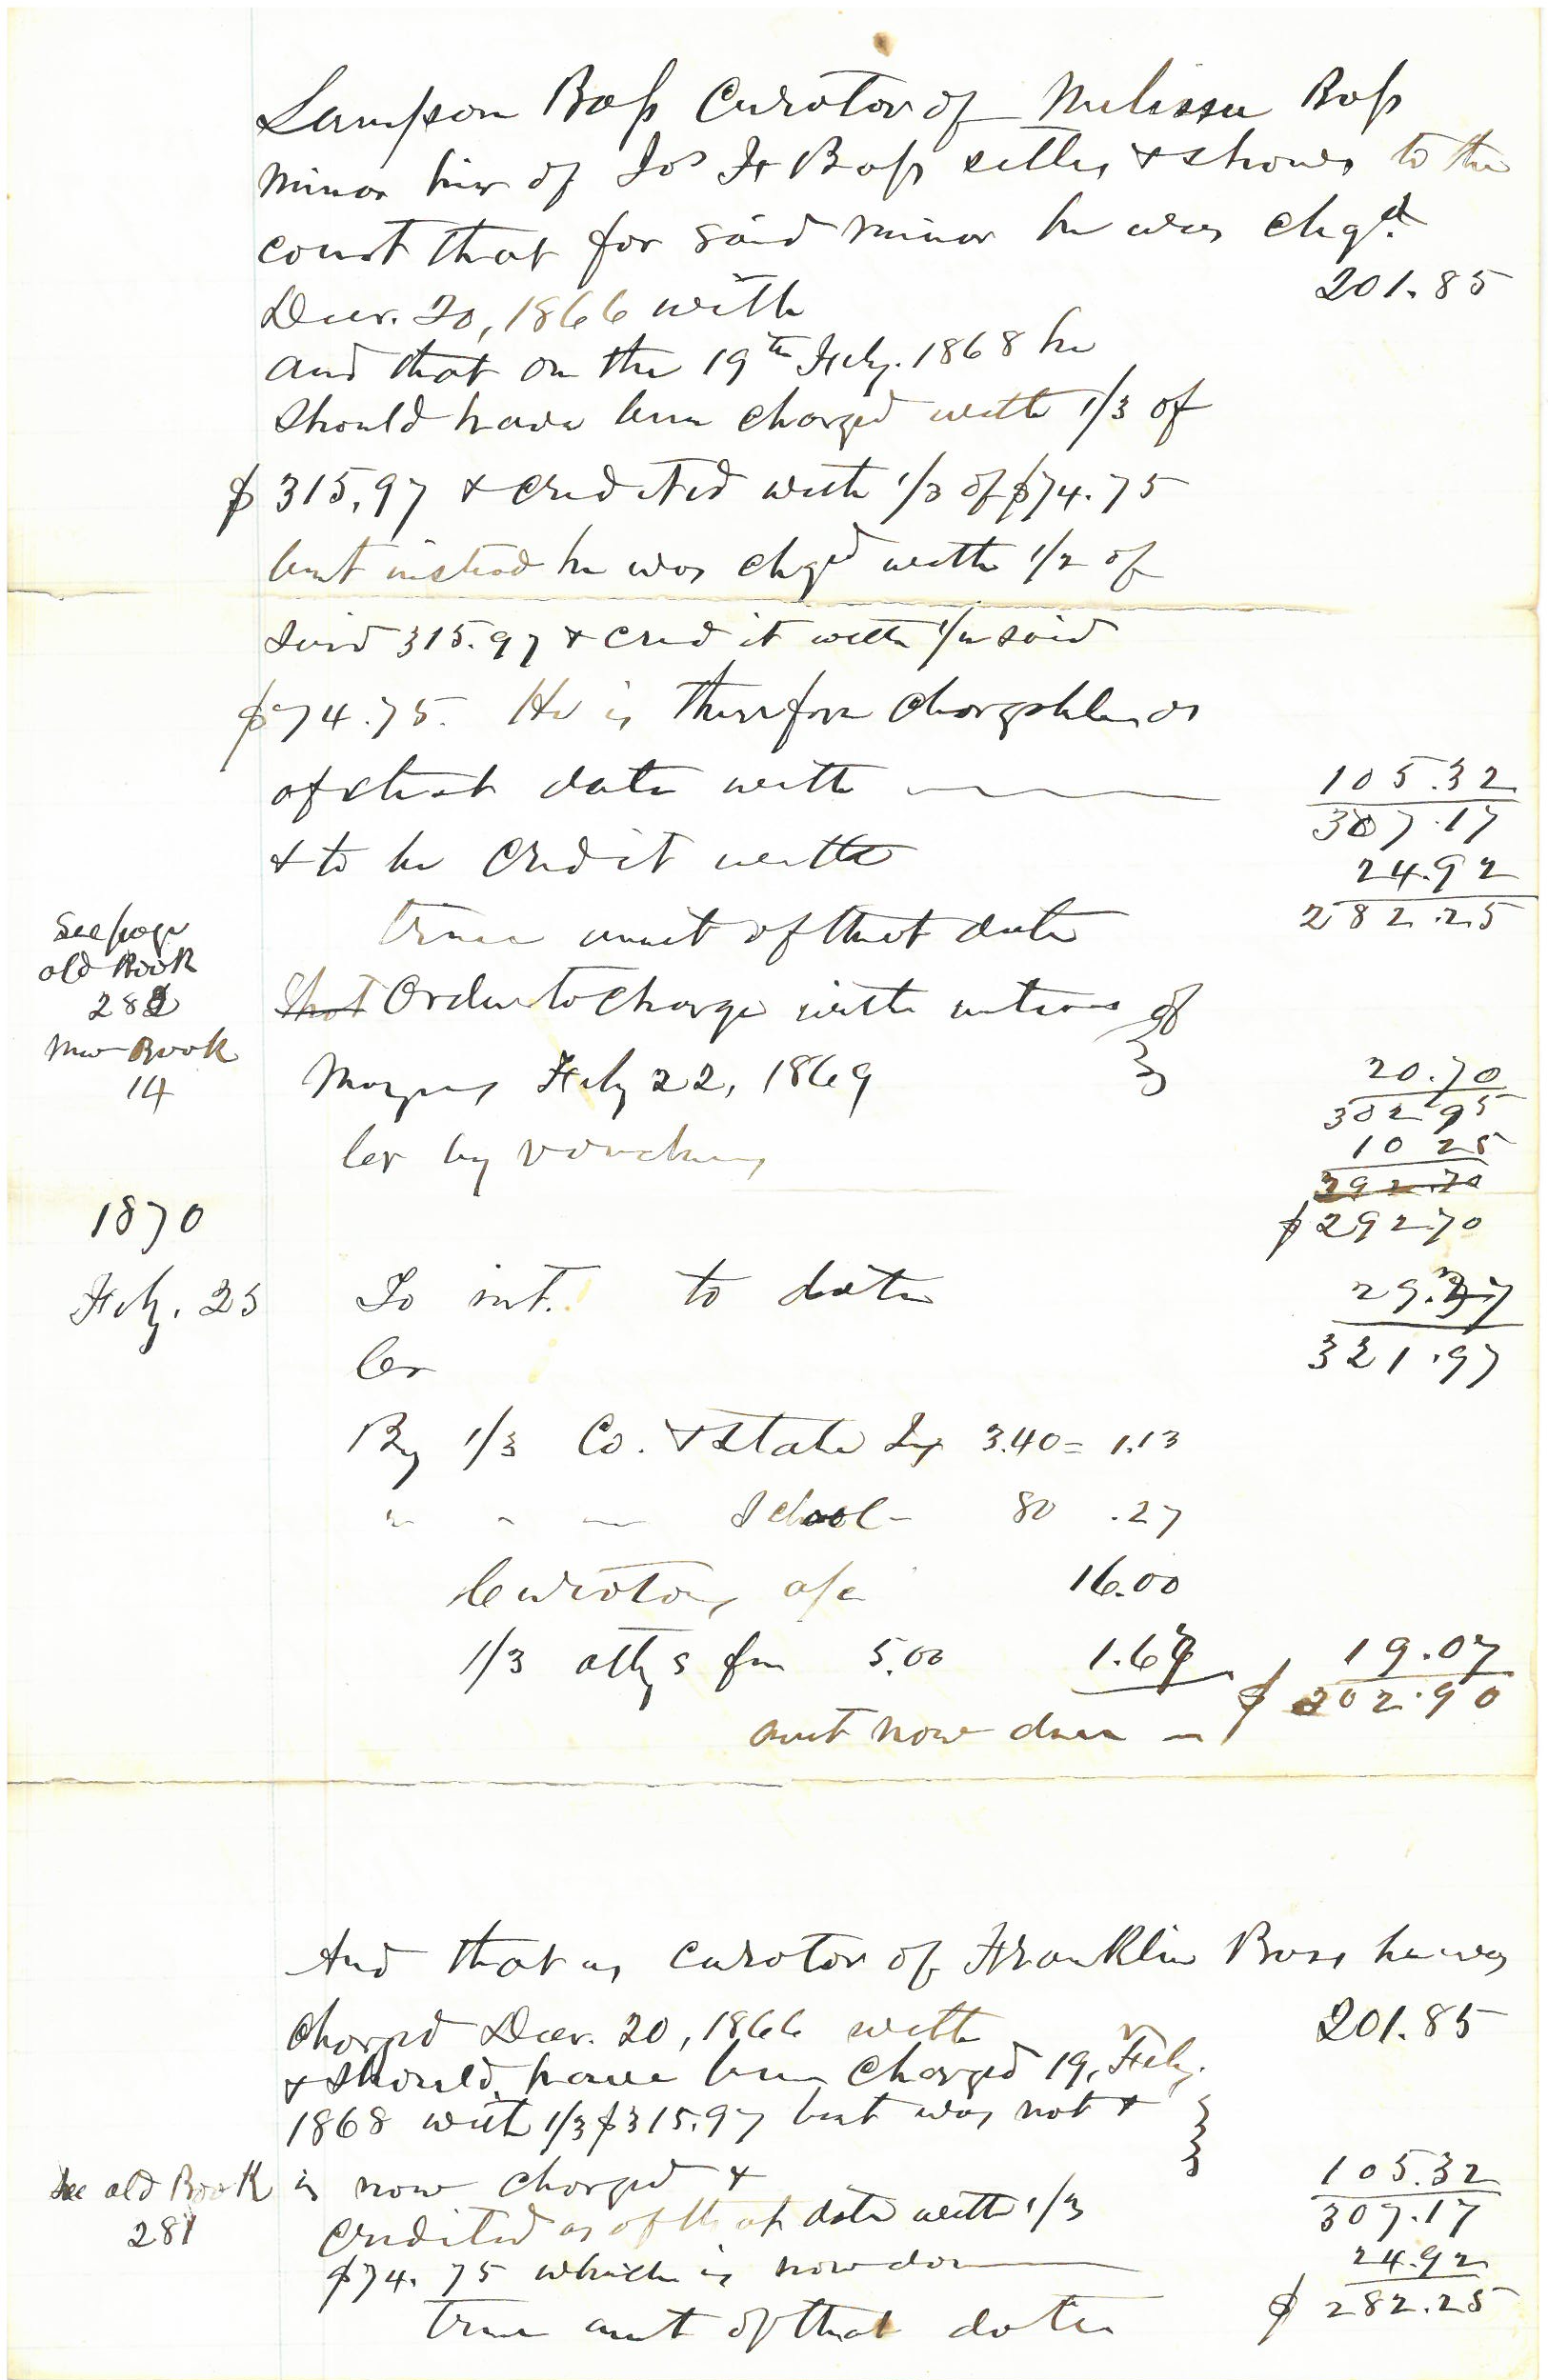 Sampson Boss Curator of Melissa Boss
minor heir of Jos H Boss settles & shows to the
court that for said minor he was chgd.
Decr. 20, 1866 with 201.85
and that on the 19th Feby. 1868 he
should have been charged with 1/3 of
$315.97 & credited with 1/3 of $74.75
but instead he was chgd with 1/2 of
said 315.97 & credit with 1/2 said
$74.75. He is therefore chargeable as
of that date with 105.32
307.17
& to be credit with 24.92
true amt of that date 282.25
See page
old Book
282
New Book
14
Order to charge with interes of
Feby 22, 1869 20.70
302 95
Cr by vouchers 10 25
392.70
$292.70
1870
Feby. 25 To int. to date 29.27
321.97
Cr
By 1/3 Co. & State Tx 3.40 = 1.13
" " " School - 80 .27
Curators a/c 16.00
1/3 attys fee 5.00 1.67 19.07
amt now due - $302.90
And that as curator of Franklin Boss he was
charged Decr. 20, 1866 with 201.85
& should have been charged 19, Feby.
1868 with 1/3 $315.97 but was not &
is now charged & 105.32
307.17
See old Book
281
credited as of that date with 1/3
$74.75 which is now don 24.92
true amt of that date $282.25